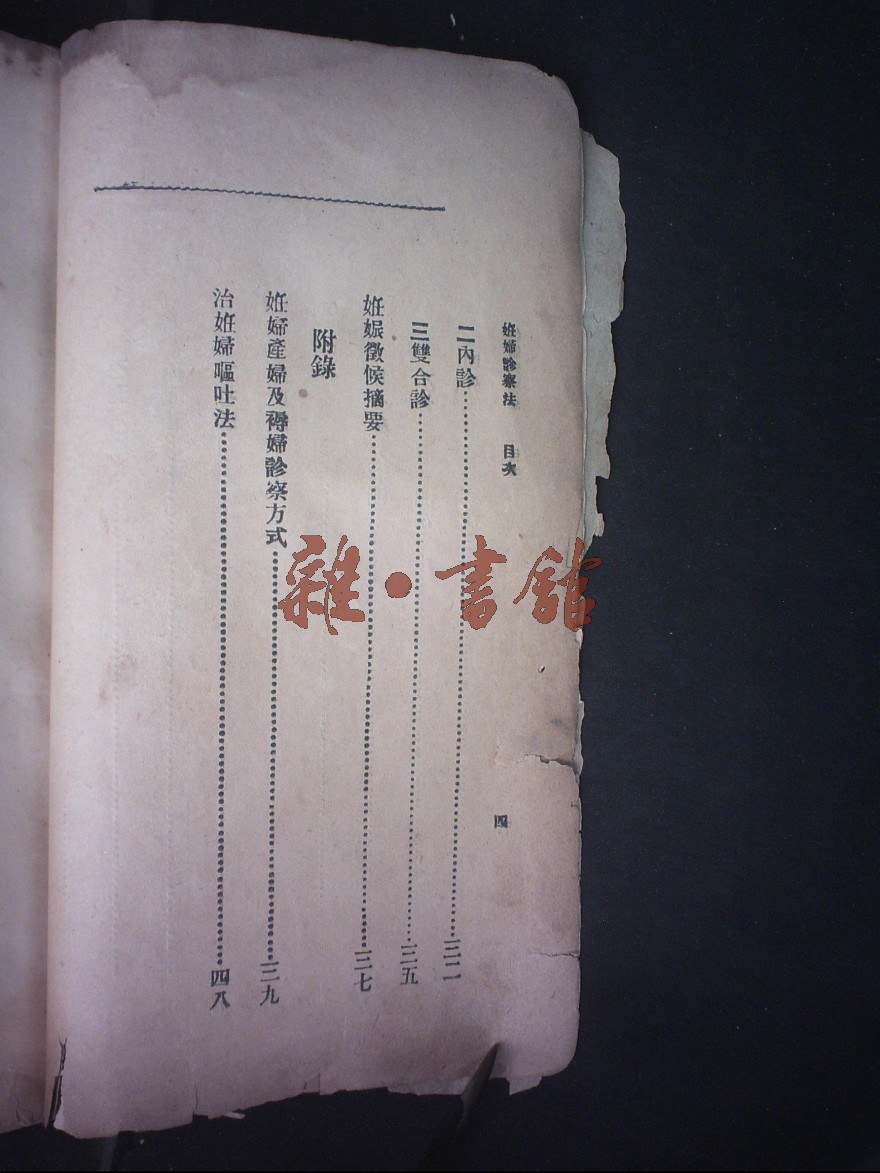 妊婦診察法　目次　四
二內診…三二
三雙合診…三五
妊娠徵候摘要…三七
附錄
妊婦產婦及褥婦診察方式…三九
治妊婦嘔吐法…四八
雜·書館